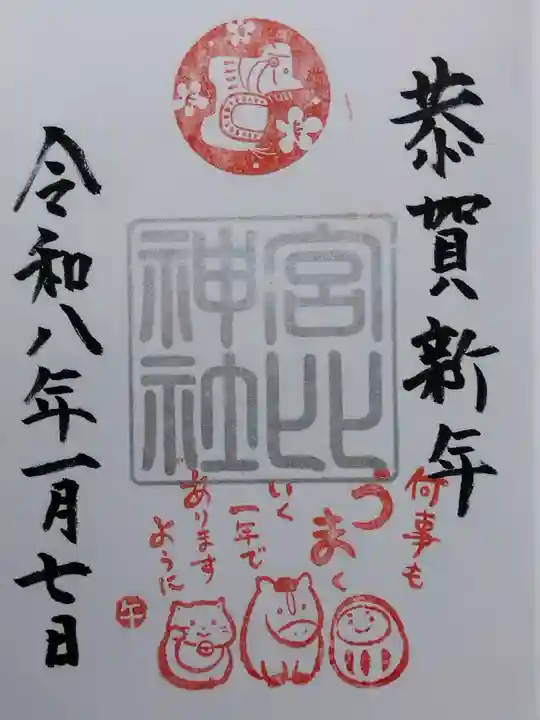 恭賀新年
宮比
神社
何事も
うまく
いく
一年で
あります
ように
午
令和八年一月七日